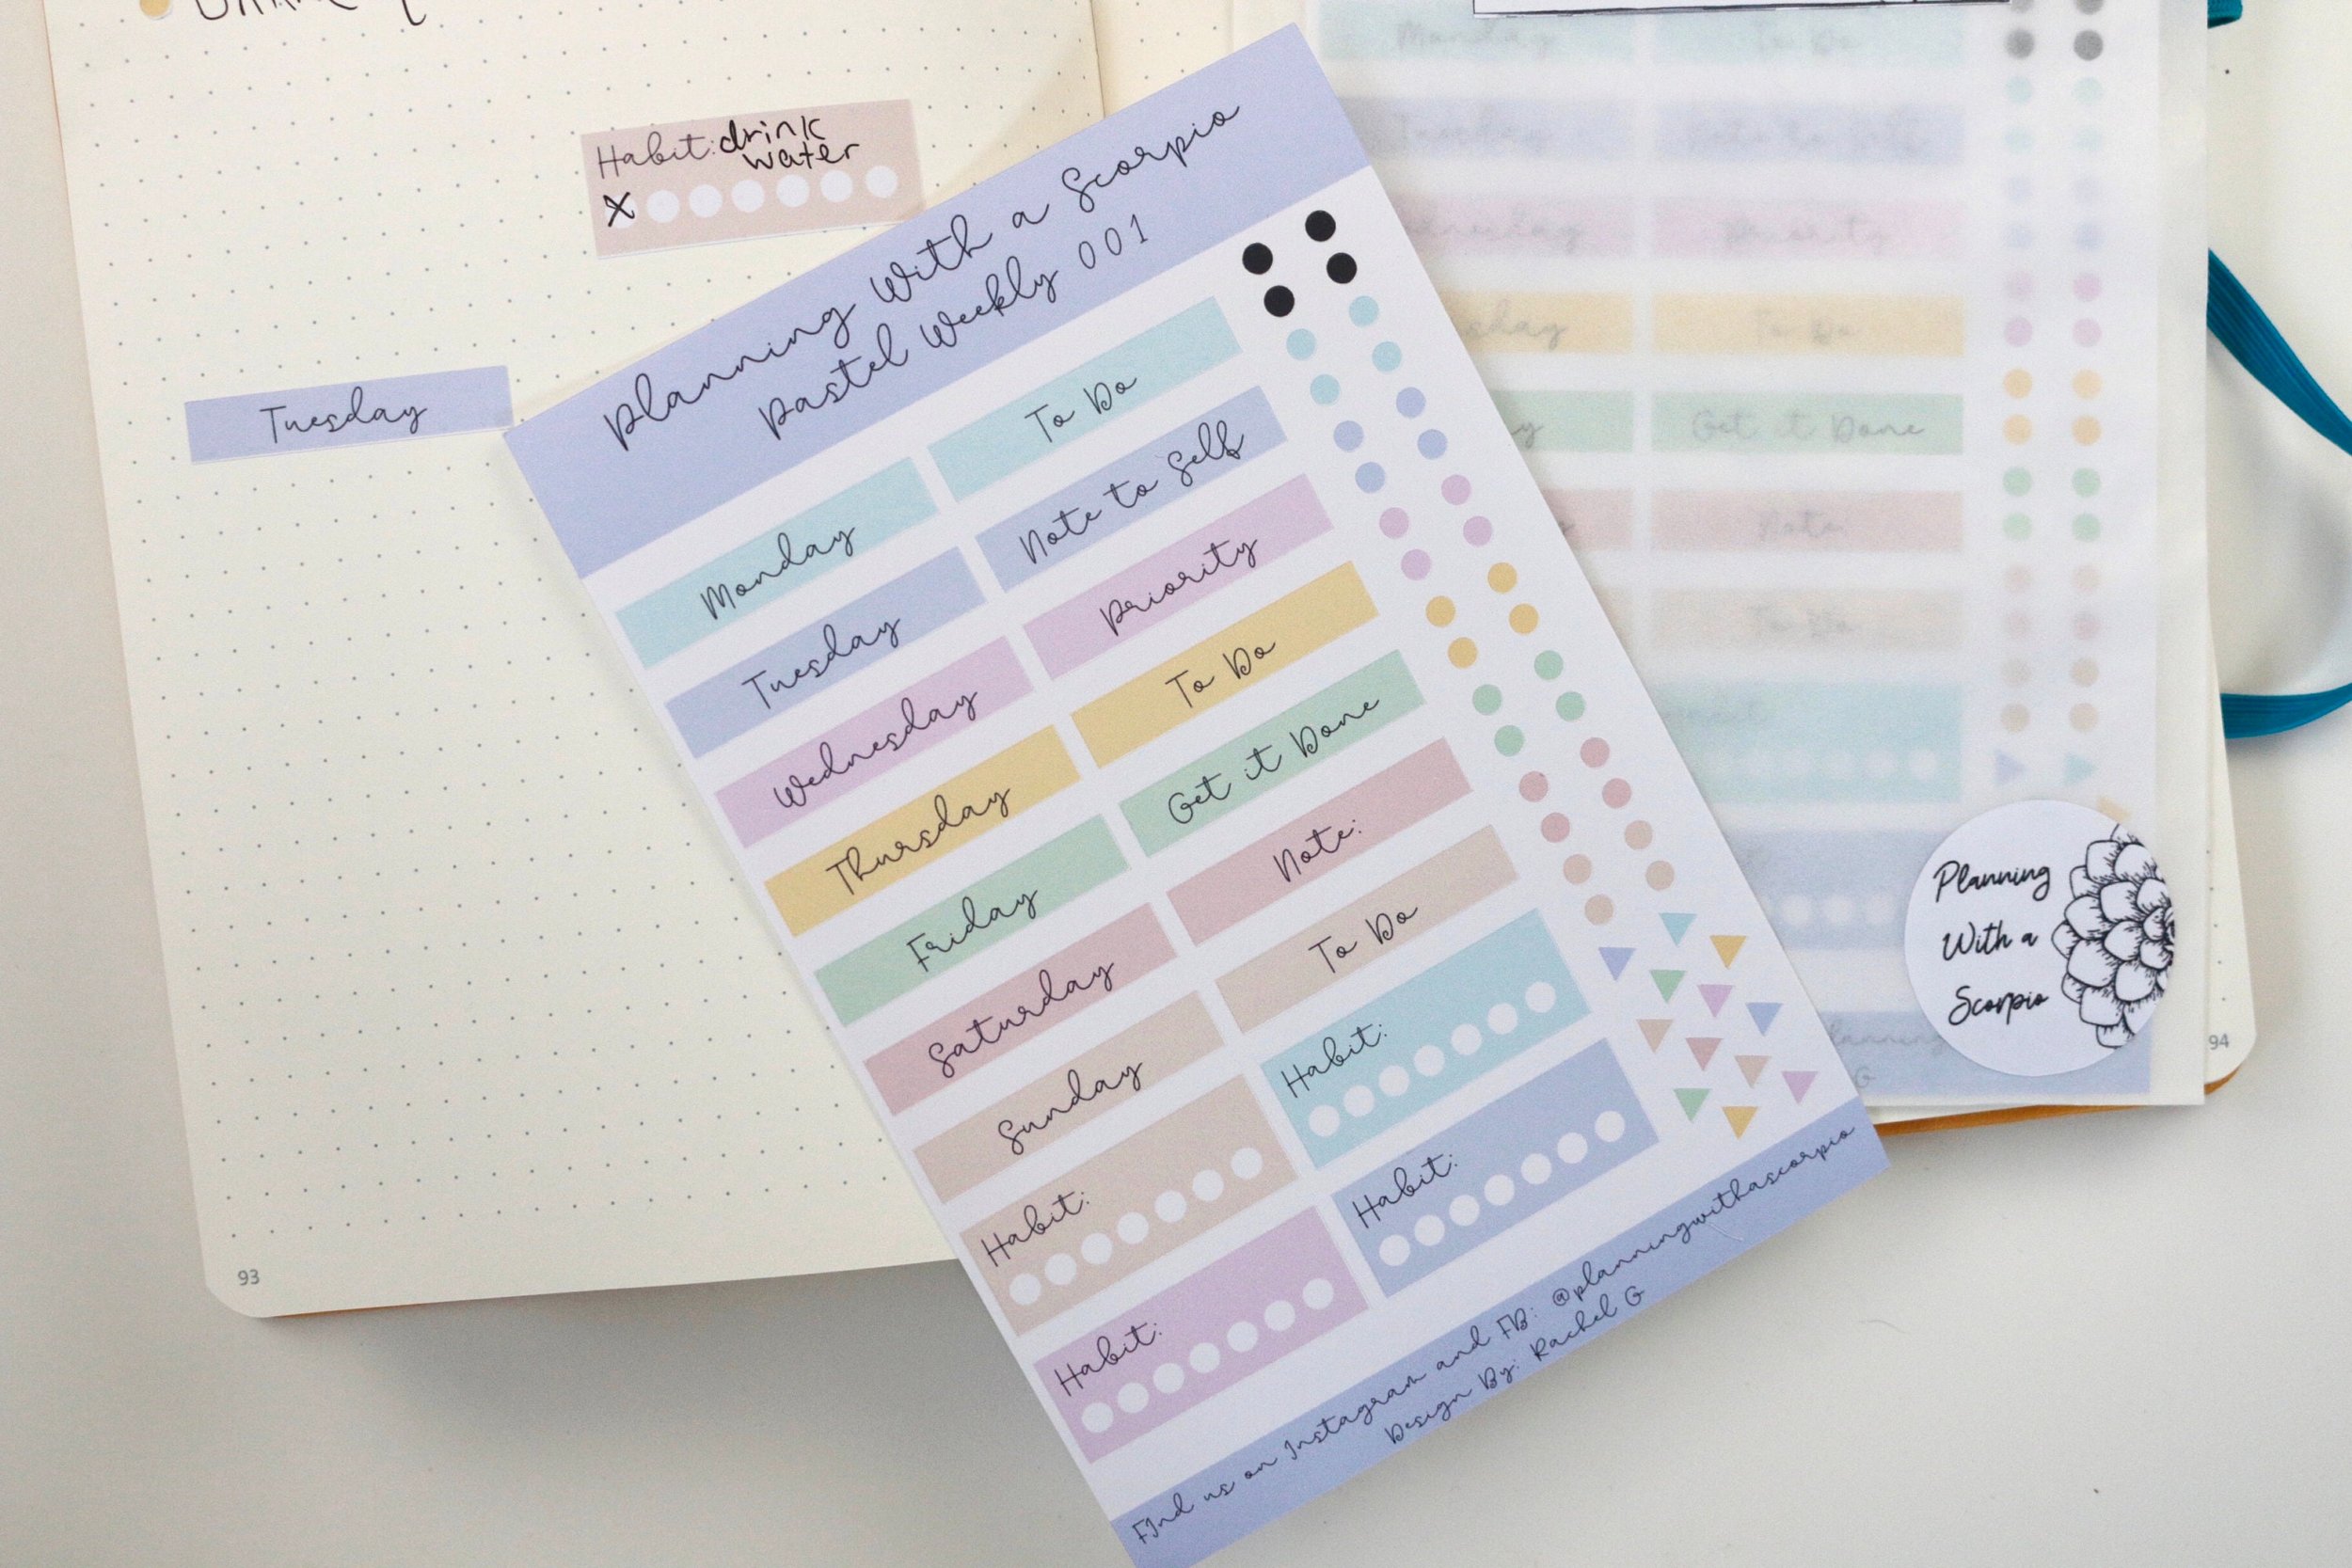 Habit: drink
water
X
Tuesday
93
Planning With a Scorpio
Pastel Weekly 001
Monday
To Do
Tuesday
Note to Self
Wednesday
Priority
Thursday
To Do
Friday
Get it Done
Saturday
Note:
Sunday
To Do
Habit:
Habit:
Habit:
Habit:
FInd us on Instagram and FB: @planningwithascorpio
Design By: Rachel G
Monday
To Do
Tuesday
Note to Self
Priority
sday
To Do
y
Get it Done
Note:
To Do
Planning
With a
Scorpio
lanning
G
94